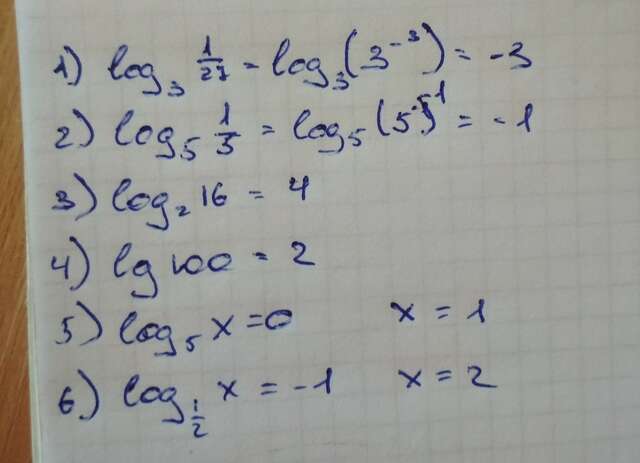 1) log₃ 1/27 = log₃(3⁻³) = -3
2) log₅ 1/5 = log₅(5⁻¹) = -1
3) log₂ 16 = 4
4) lg 100 = 2
5) log₅ x = 0 x = 1
6) log_{1/2} x = -1 x = 2